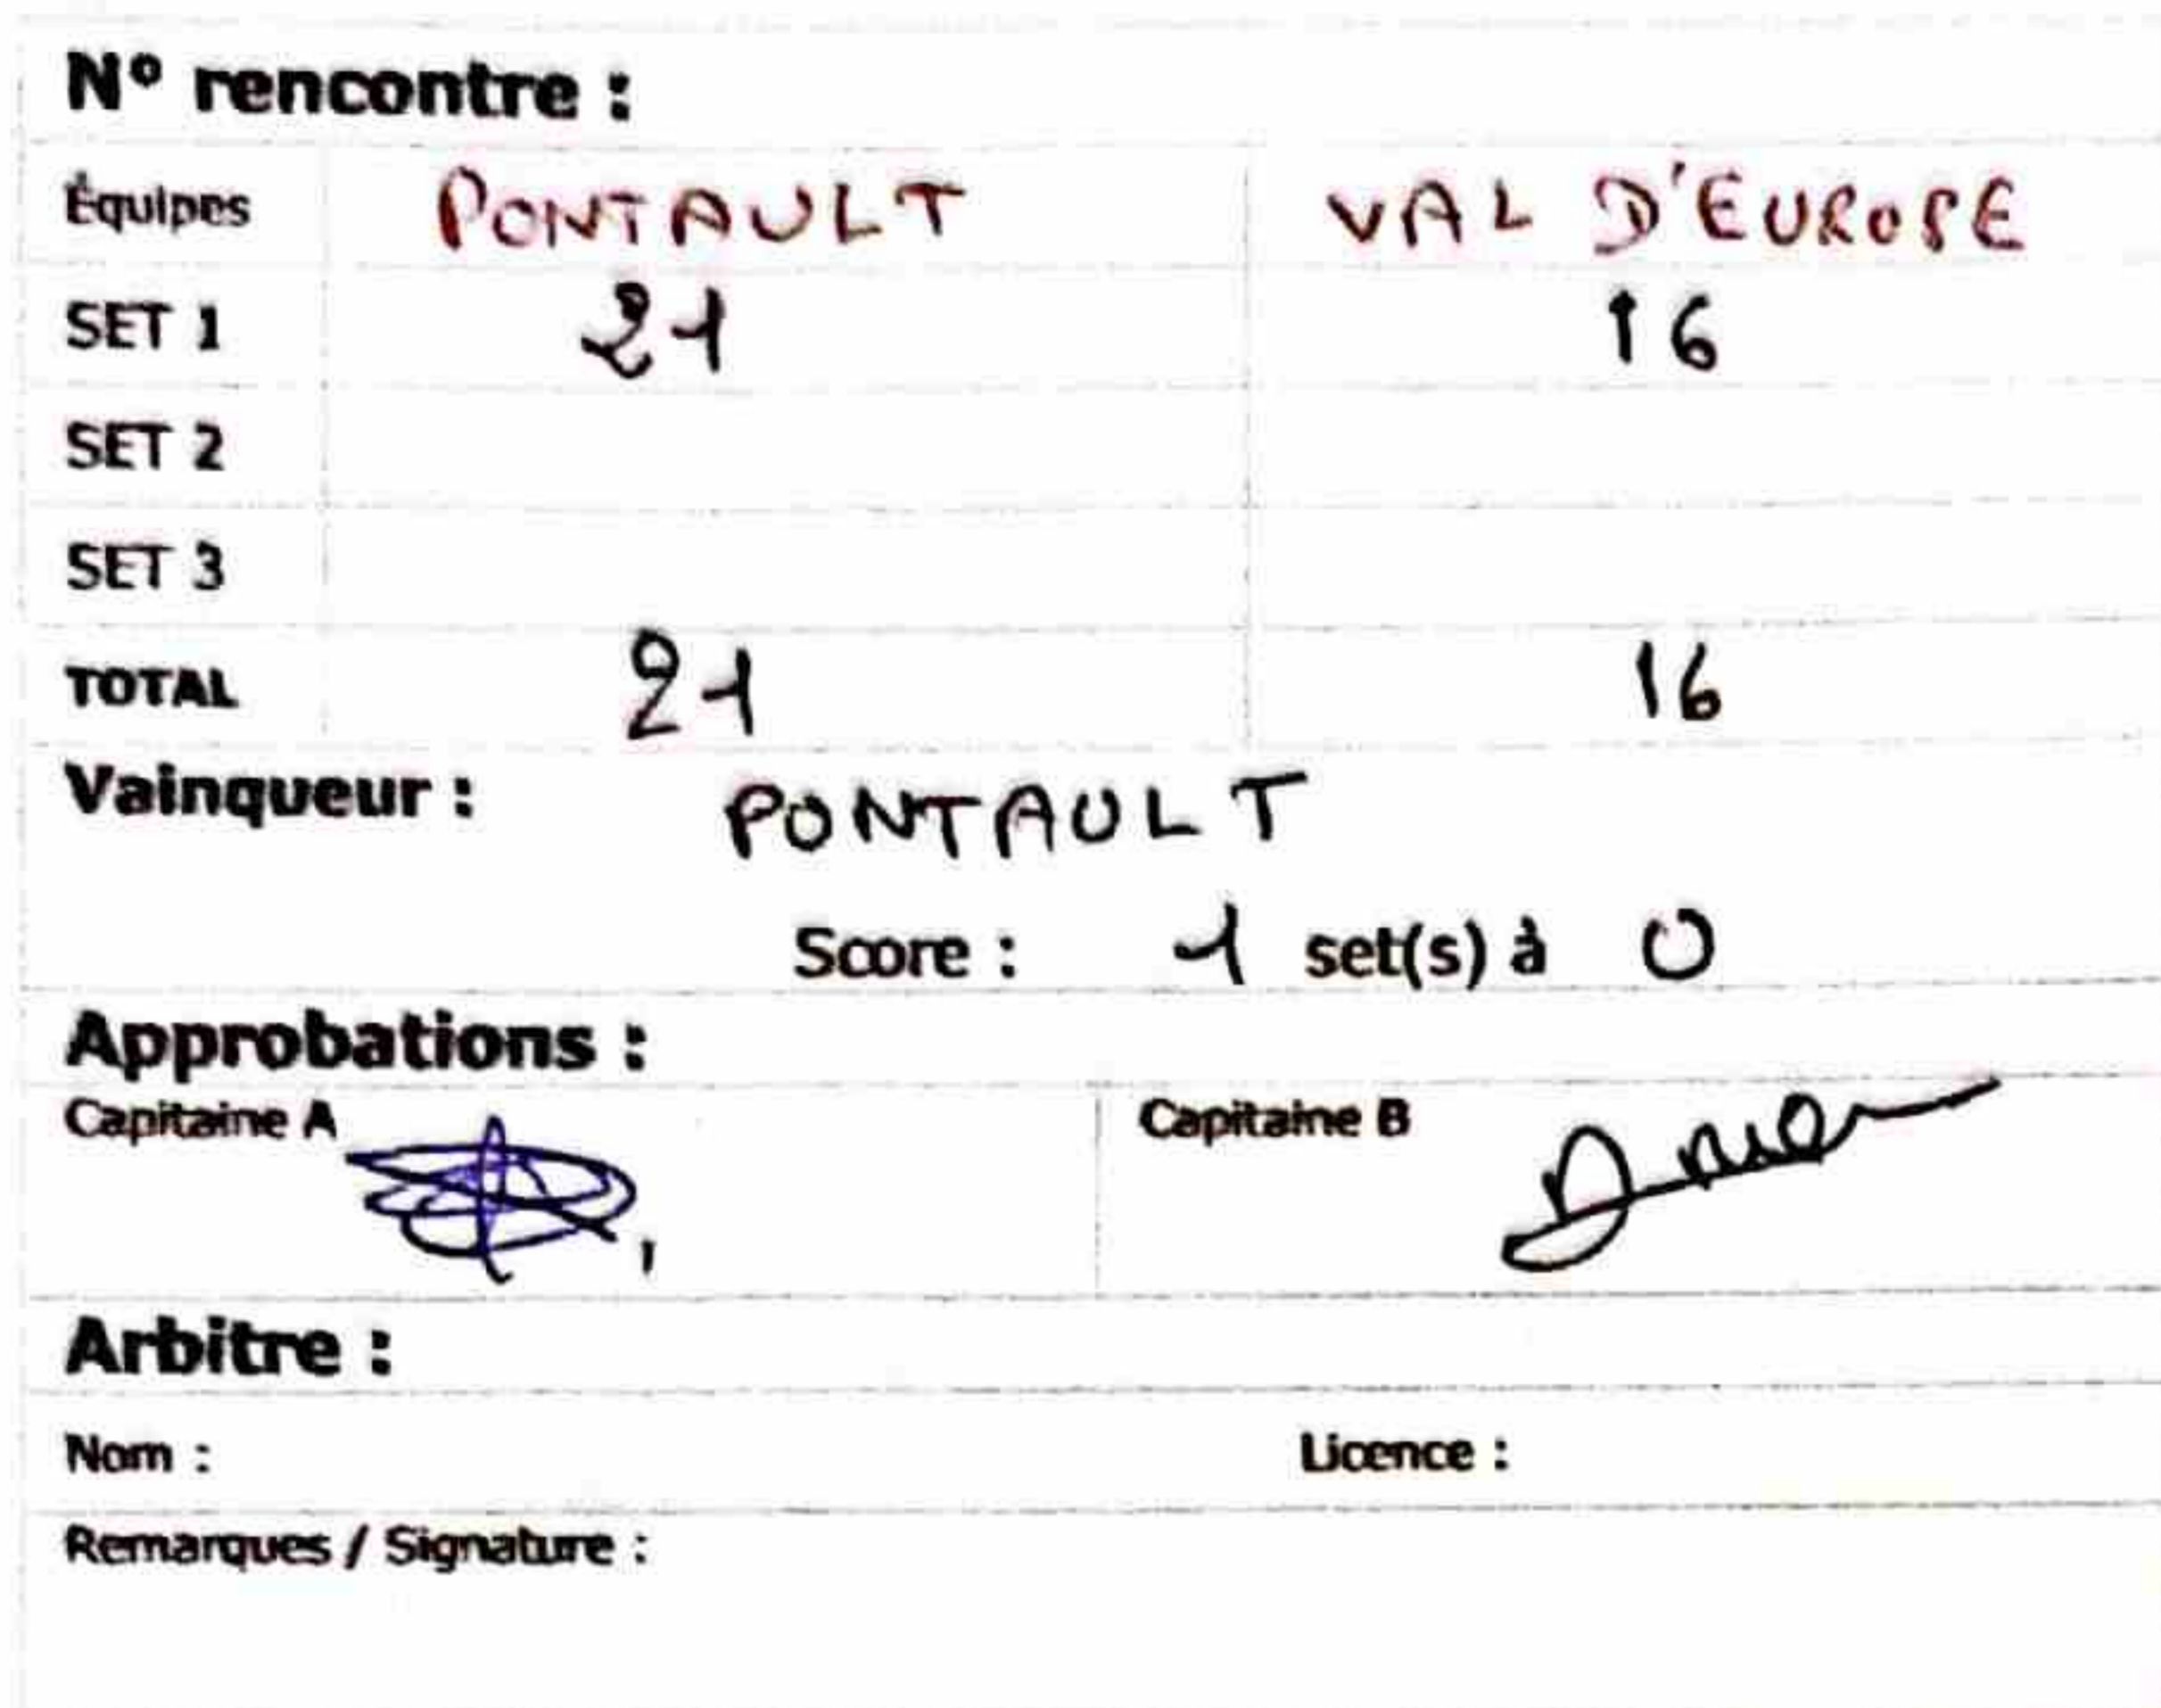 N° rencontre :
Équipes PONTAULT VAL D'EUROPE
SET 1 21 16
SET 2
SET 3
TOTAL 21 16
Vainqueur : PONTAULT
Score : 1 set(s) à 0
Approbations :
Capitaine A Capitaine B
Arbitre :
Nom : Licence :
Remarques / Signature :